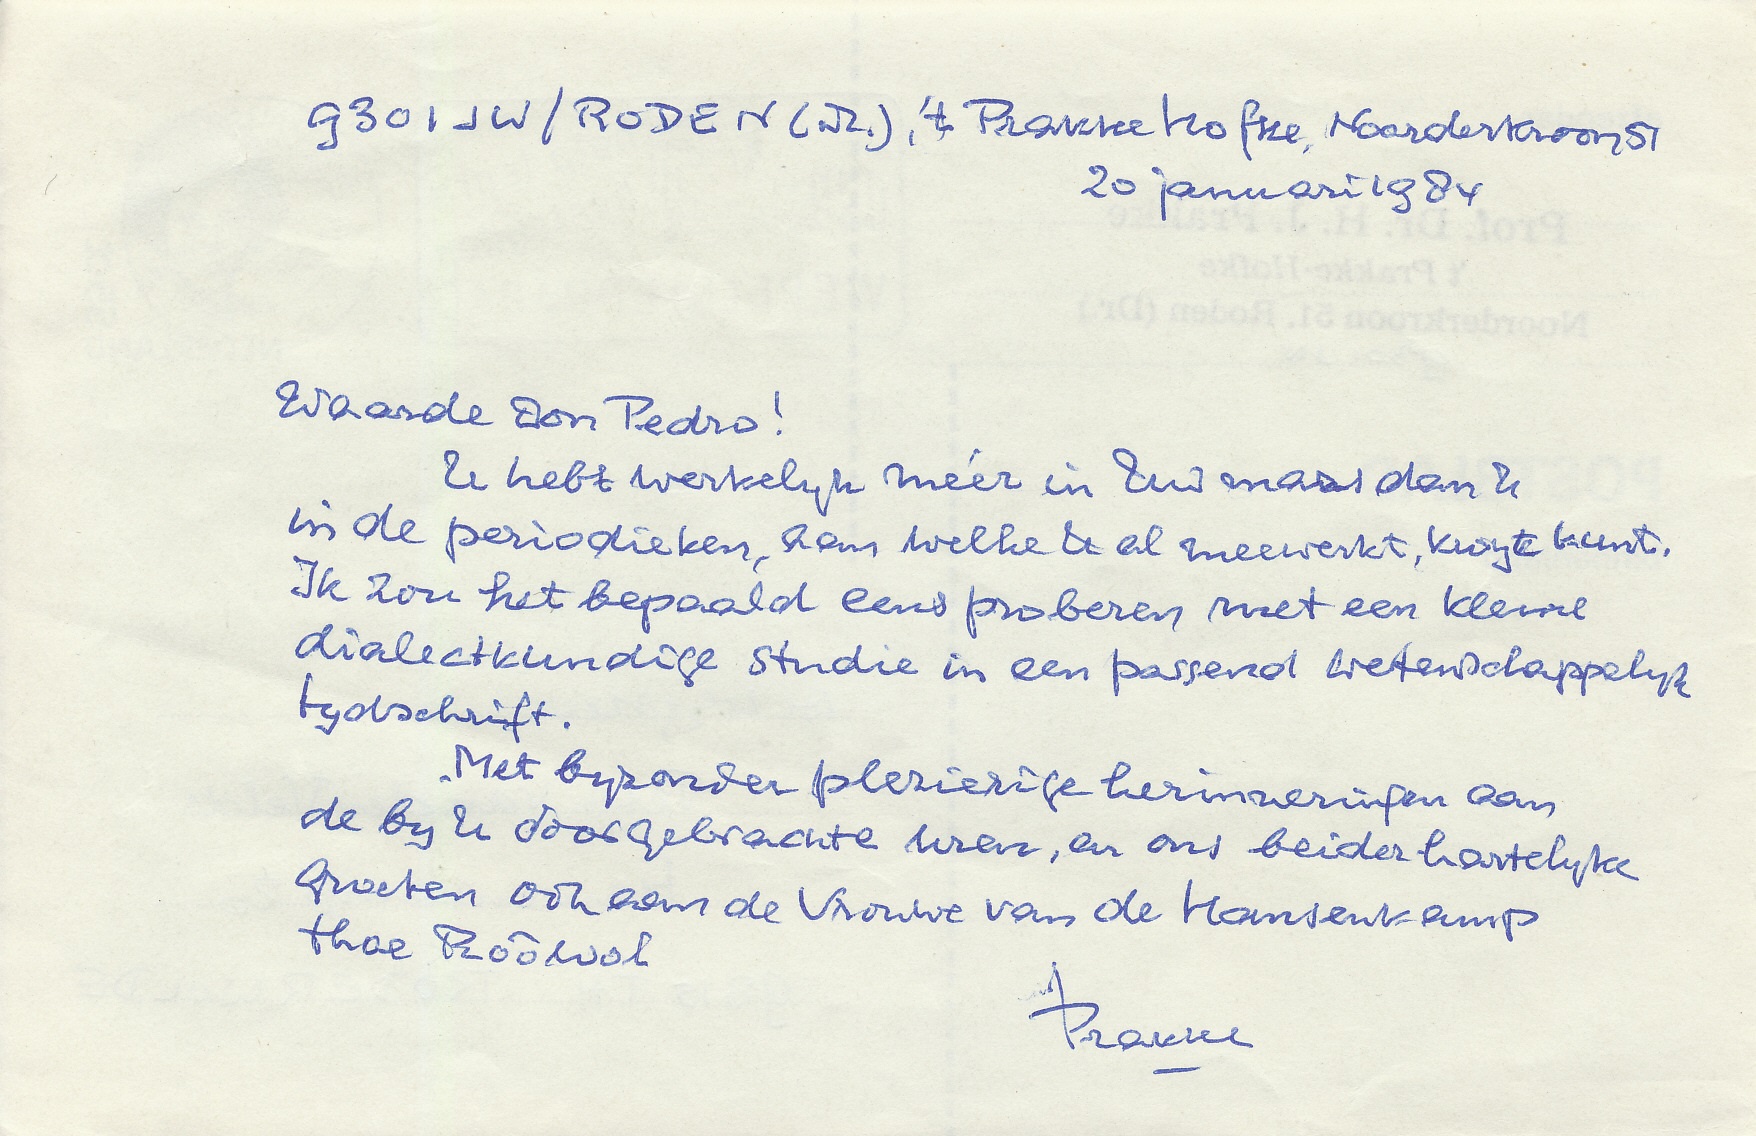 9301 JW/RODEN (Dr.), 't Prakke Hofke, Noorderkroon 51
20 januari 1984
Prof. Dr. H. J. Prakke
't Prakke-Hofke
Noorderkroon 51, Roden (Dr.)
Waarde Don Pedro!
U hebt werkelyk méér in Uw mars dan U
in de periodieken, aan welke U al meewerkt, kwyt kunt.
Ik zou het bepaald eens proberen met een kleine
dialectkundige studie in een passend wetenschappelyk
tydschrift.
Met byzonder plezierige herinneringen aan
de by U doorgebrachte uren, en ons beider hartelyke
groeten ook aan de Vrouwe van de Hansenkamp
thoe Roôwol
Prakke